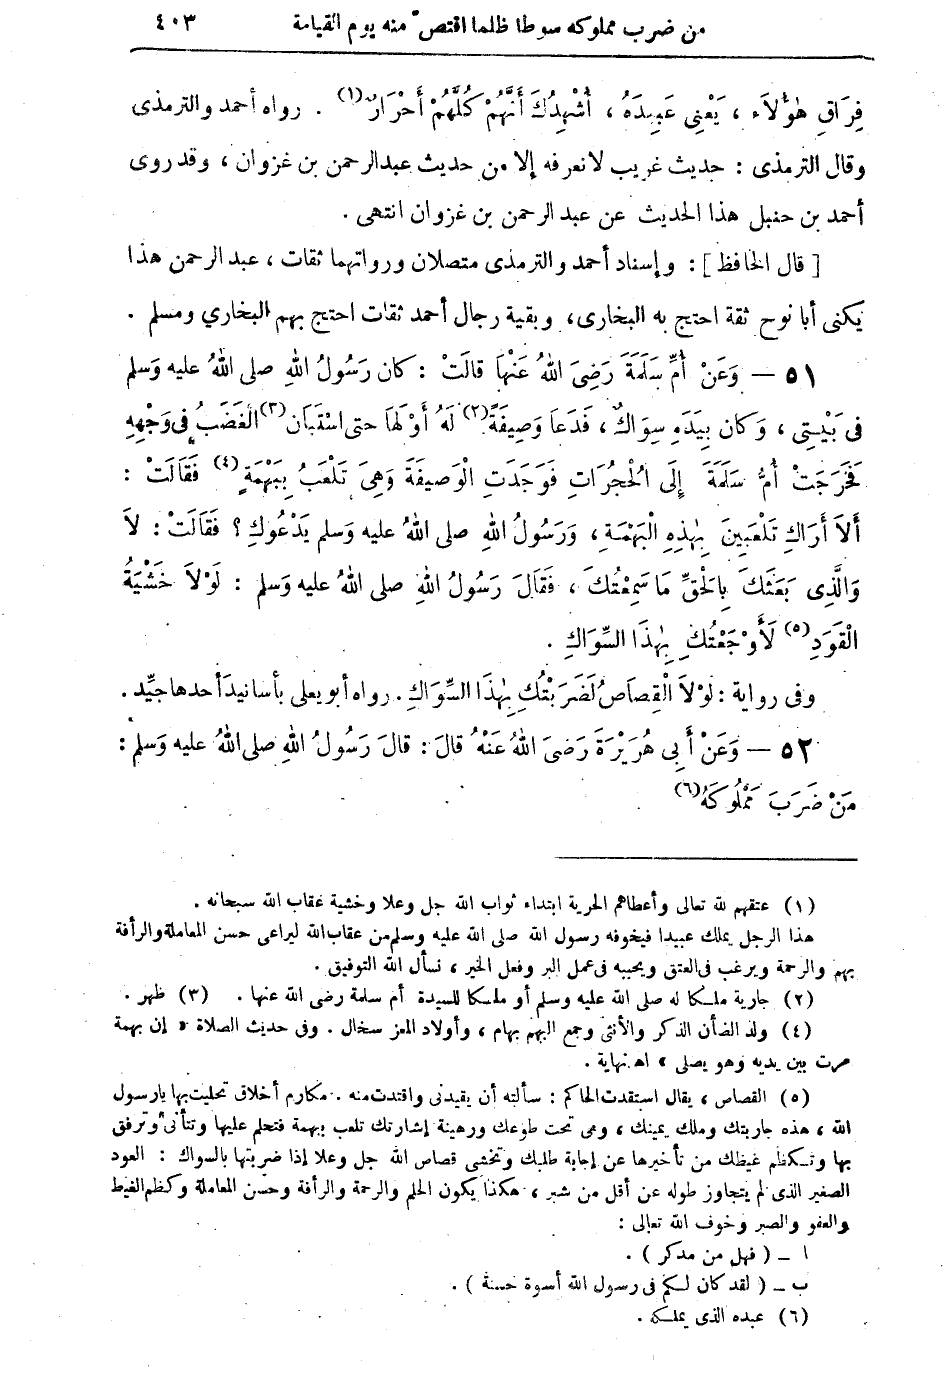 من ضرب مملوكه سوطا ظلما اقتص منه يوم القيامة ٤٠٣
فِرَاقِ هٰؤُلَاء ، يَعْنِى عَبِيدَهُ ، أُشْهِدُكَ أَنَّهُمْ كُلَّهُمْ أَحْرَارٌ(١) . رواه أحمد والترمذى
وقال الترمذى : حديث غريب لانعرفه إلا من حديث عبدالرحمن بن غزوان ، وقد روى
أحمد بن حنبل هذا الحديث عن عبد الرحمن بن غزوان انتهى .
[ قال الحافظ ] : وإسناد أحمد والترمذى متصلان ورواتهما ثقات ، عبد الرحمن هذا
يكنى أبا نوح ثقة احتج به البخارى ، وبقية رجال أحمد ثقات احتج بهم البخاري ومسلم .
٥١ — وَعَنْ أُمِّ سَلَمَةَ رَضِىَ اللهُ عَنْهَا قالَتْ : كان رَسُولُ اللهِ صلى اللهُ عليه وَسلم
فى بَيْتِى ، وَكان بِيَدِهِ سِوَاكٌ ، فَدَعَا وَصِيفَةً(٢) لَهُ أَوْ لَهَا حتى اسْتَبَان(٣) الْغَضَبُ فى وَجْهِهِ
فَخَرَجَتْ أُمُّ سَلَمَةَ إِلَى الْحُجُرَاتِ فَوَجَدَتِ الْوَصِيفَةَ وَهِىَ تَلْعَبُ بِبَهْمَةٍ(٤) فَقَالَتْ :
أَلَا أَرَاكِ تَلْعَبِينَ بِهٰذِهِ الْبَهْمَةِ ، وَرَسُولُ اللهِ صلى اللهُ عليه وَسلم يَدْعُوكِ ؟ فَقَالَتْ : لَا
وَالَّذِى بَعَثَكَ بِالْحَقِّ مَا سَمِعْتُكَ ، فَقَالَ رَسُولُ اللهِ صلى اللهُ عليه وَسلم : لَوْلَا خَشْيَةُ
الْقَوَدِ(٥) لَأَوْجَعْتُكِ بِهٰذَا السِّوَاكِ .
وفى رواية : لَوْلَا الْقِصاَصُ لَضَرَبْتُكِ بِهٰذَا السِّوَاكِ . رواه أبو يعلى بأسانيد أحدها جيِّد .
٥٢ — وَعَنْ أَبِى هُرَيْرَةَ رَضِىَ اللهُ عَنْهُ قالَ : قالَ رَسُولُ اللهِ صلى اللهُ عليه وَسلم :
مَنْ ضَرَبَ مَمْلُوكَهُ(٦)
(١) عتقهم لله تعالى وأعطاهم الحرية ابتداء ثواب الله جل وعلا وخشية عقاب الله سبحانه .
هذا الرجل يملك عبيدا فيخوفه رسول الله صلى الله عليه وسلم من عقاب الله ليراعى حسن المعاملة والرأفة
بهم والرحمة ويرغب فى العتق ويحببه فى عمل البر وفعل الخير ، نسأل الله التوفيق .
(٢) جارية ملكا له صلى الله عليه وسلم أو ملكا للسيدة أم سلمة رضى الله عنها . (٣) ظهر .
(٤) ولد الضأن الذكر والأنثى وجمع البهم بهام ، وأولاد المعز سخال . وفى حديث الصلاة « إن بهمة
مرت بين يديه وهو يصلى » اه نهاية .
(٥) القصاص ، يقال استقدت الحاكم : سألته أن يقيدنى واقتدت منه . مكارم أخلاق تحليت بها يارسول
الله ، هذه جاريتك وملك يمينك ، وهى تحت طوعك ورهينة إشارتك تلعب ببهمة فتحلم عليها وتتأنى وترفق
بها وتكظم غيظك من تأخيرها عن إجابة طلبك وتخشى قصاص الله جل وعلا إذا ضربتها بالسواك : العود
الصغير الذى لم يتجاوز طوله عن أقل من شبر ، هكذا يكون الحلم والرحمة والرأفة وحسن المعاملة وكظم الغيظ
والعفو والصبر وخوف الله تعالى :
ا — ( فهل من مدكر ) .
ب — ( لقد كان لكم فى رسول الله أسوة حسنة ) .
(٦) عبده الذى يملكه .